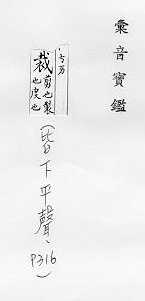 彙音寶鑑
裁剪也製
也度也
(皆下平聲、
P316)